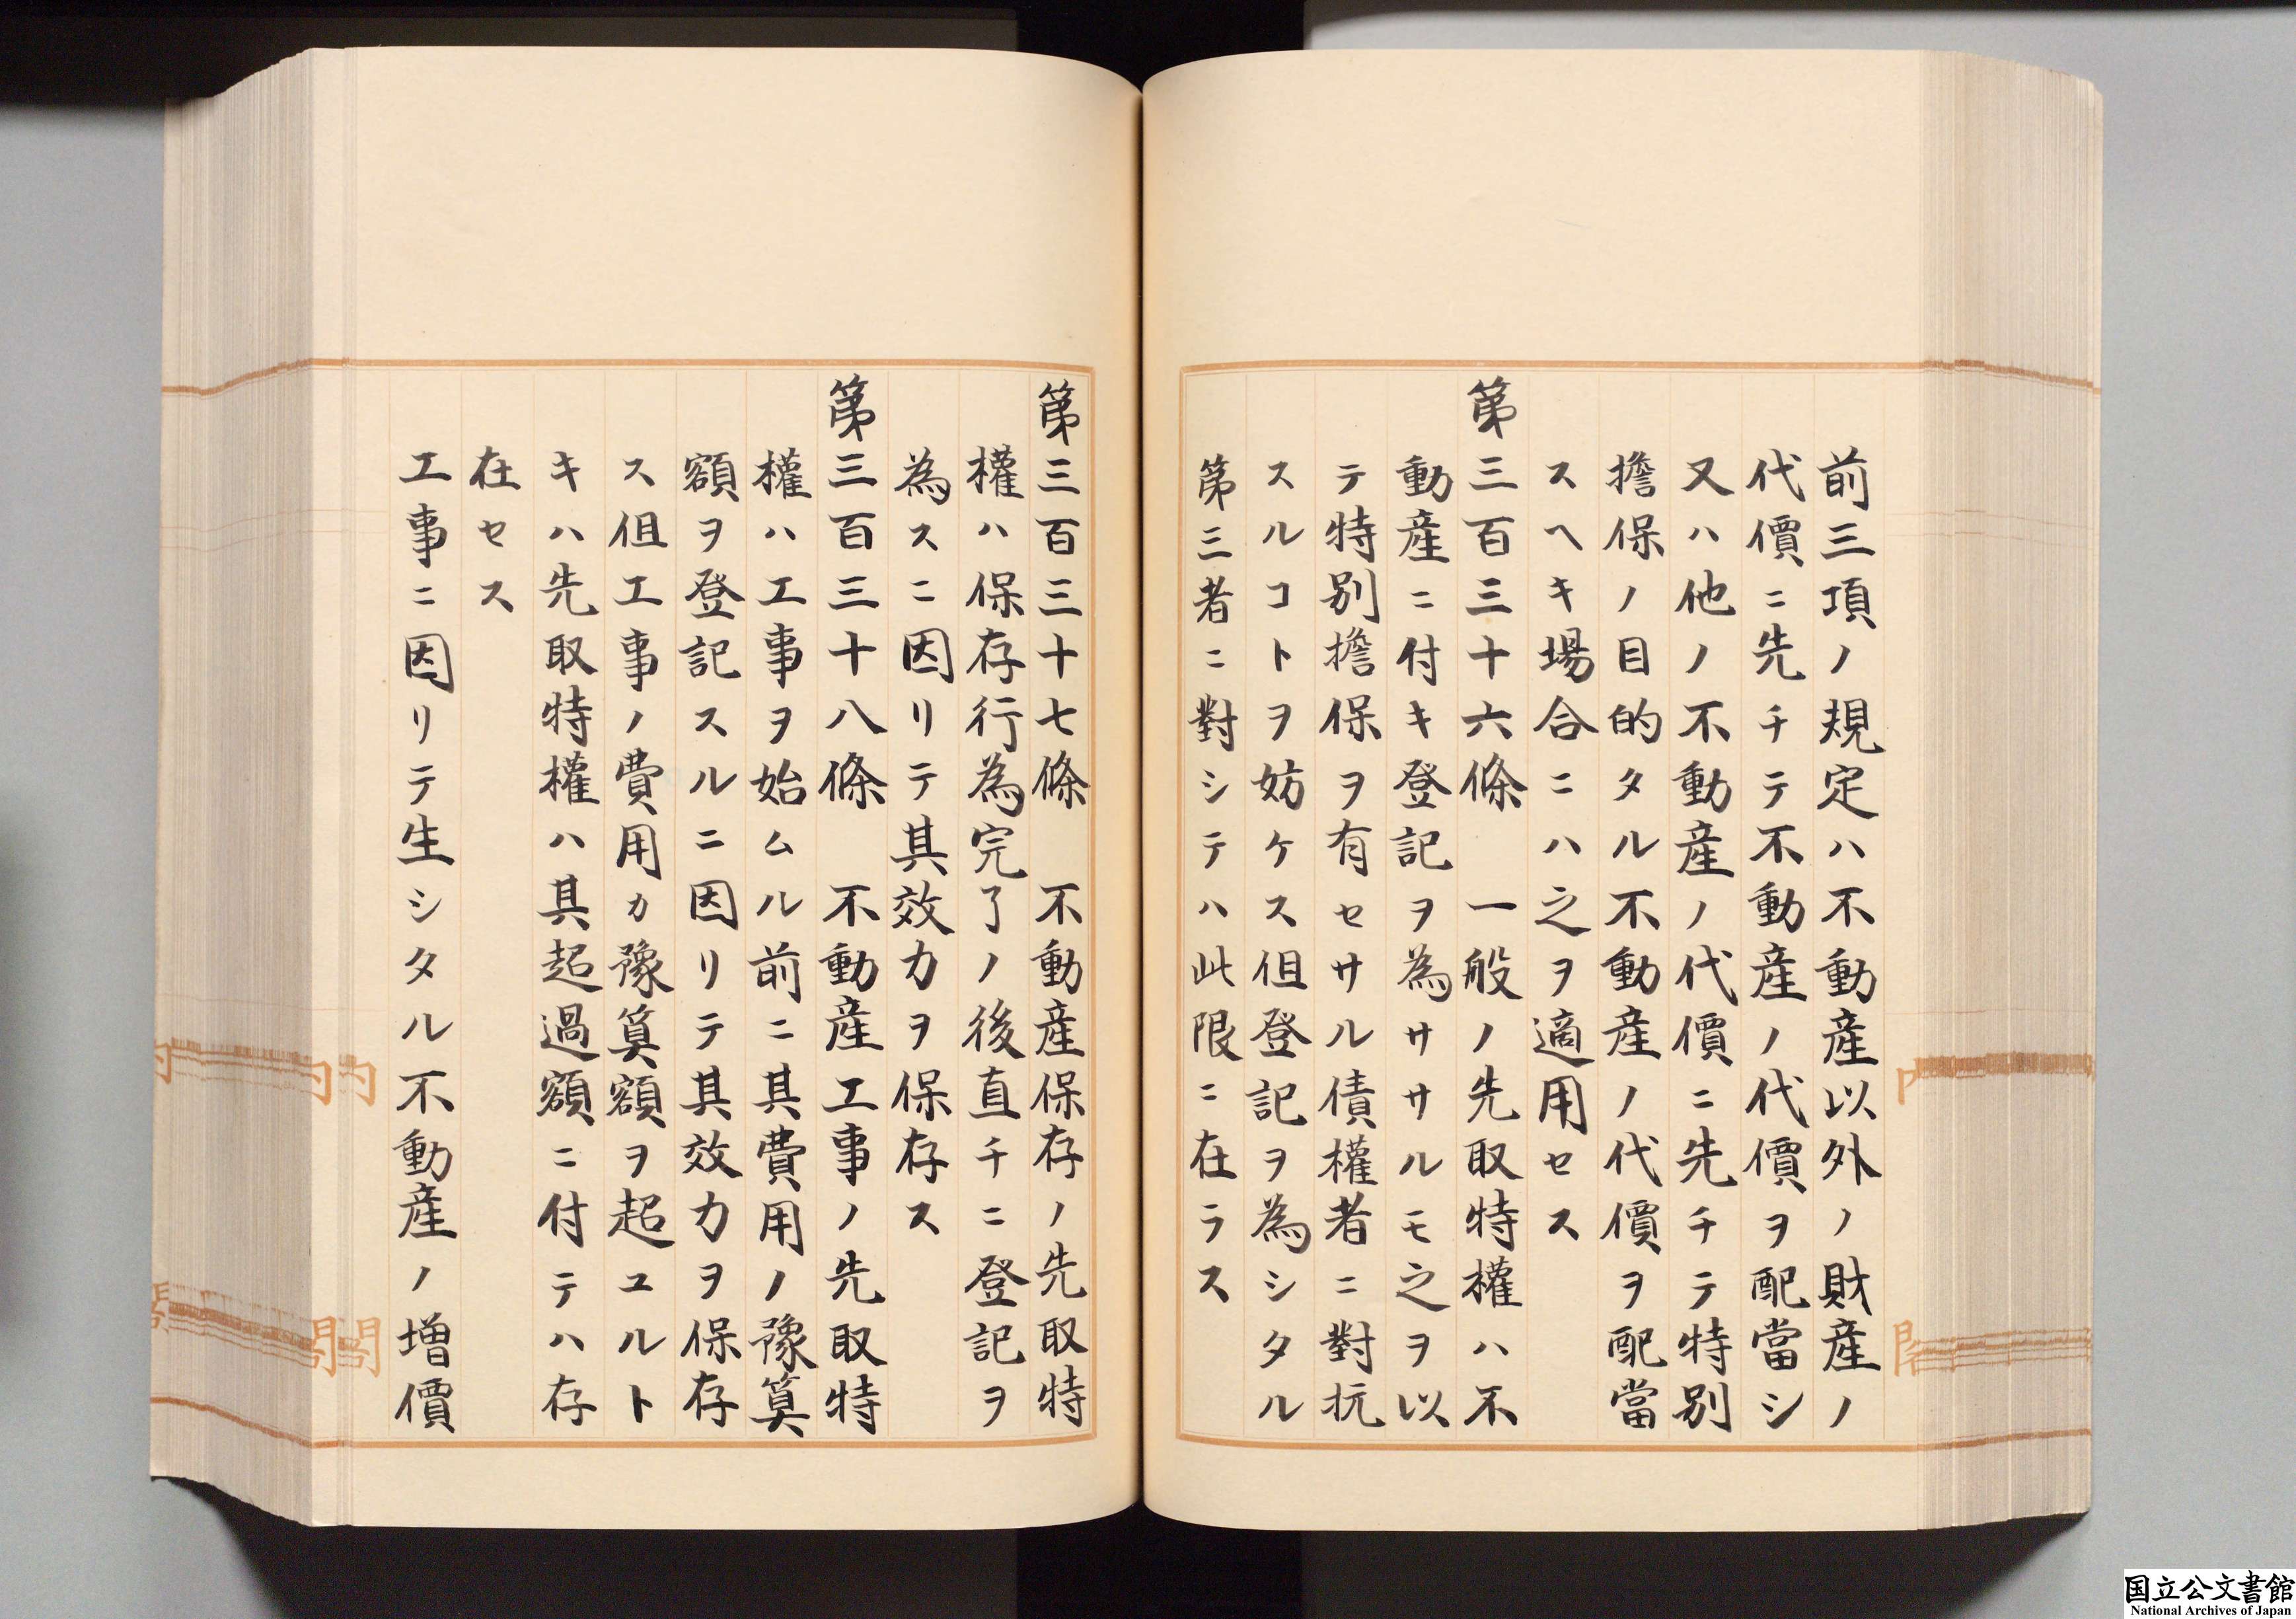 前三項ノ規定ハ不動産以外ノ財産ノ
代價ニ先チテ不動産ノ代價ヲ配當シ
又ハ他ノ不動産ノ代價ニ先チテ特別
擔保ノ目的タル不動産ノ代價ヲ配當
スヘキ場合ニハ之ヲ適用セス
第三百三十六條　一般ノ先取特權ハ不
動産ニ付キ登記ヲ為ササルモ之ヲ以
テ特別擔保ヲ有セサル債權者ニ對抗
スルコトヲ妨ケス但登記ヲ為シタル
第三者ニ對シテハ此限ニ在ラス
第三百三十七條　不動産保存ノ先取特
權ハ保存行為完了ノ後直チニ登記ヲ
為スニ因リテ其效力ヲ保存ス
第三百三十八條　不動産工事ノ先取特
權ハ工事ヲ始ムル前ニ其費用ノ豫算
額ヲ登記スルニ因リテ其效力ヲ保存
ス但工事ノ費用カ豫算額ヲ超ユルト
キハ先取特權ハ其超過額ニ付テハ存
在セス
工事ニ因リテ生シタル不動産ノ増價
国立公文書館
National Archives of Japan